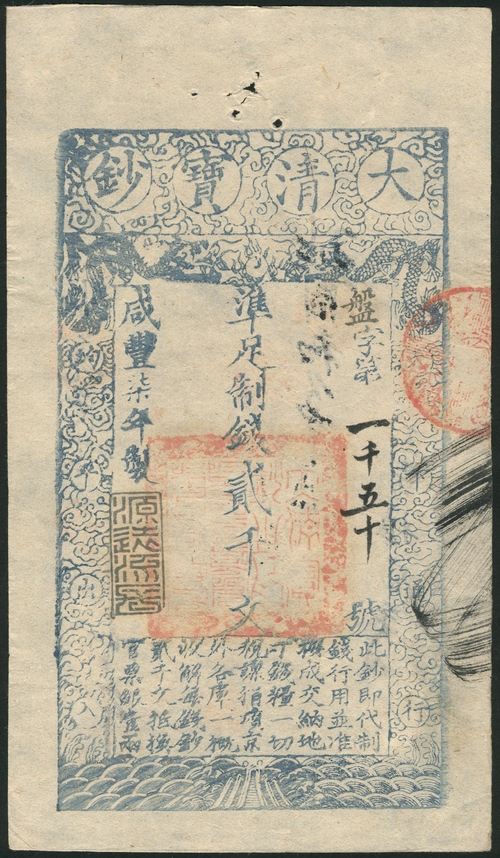 大清寶鈔
天下通行
盤字第一千五十號
準足制錢貳千文
咸豐柒年製
均平出入
源遠流長
此鈔即代制
錢行用並准
按成交納地
丁錢糧一切
稅課捐項京
外各庫一概
收解每錢鈔
貳千文抵換
官票銀壹兩